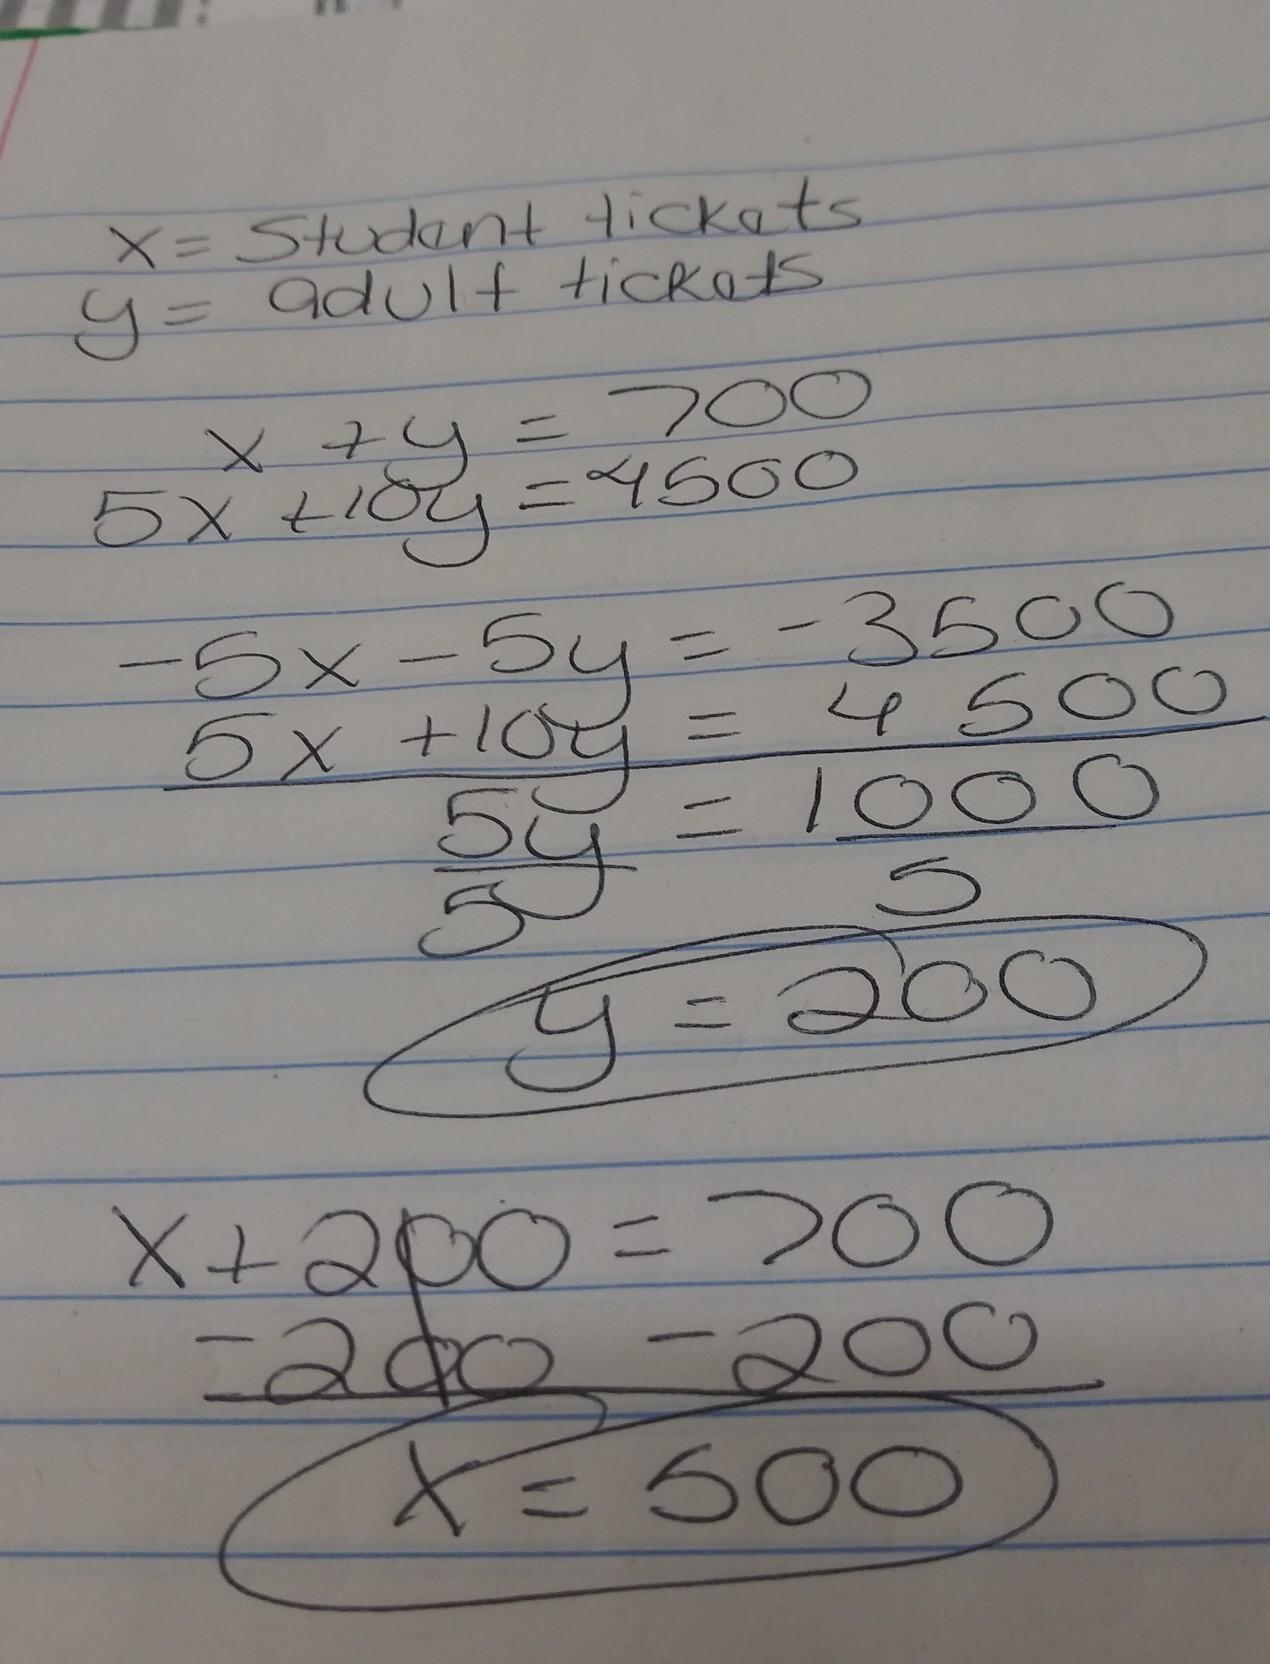 x = Student tickets
y = adult tickets
x + y = 700
5x + 10y = 4500
-5x - 5y = -3500
5x + 10y = 4500
5y = 1000
5 5
y = 200
x + 200 = 700
-200 -200
x = 500